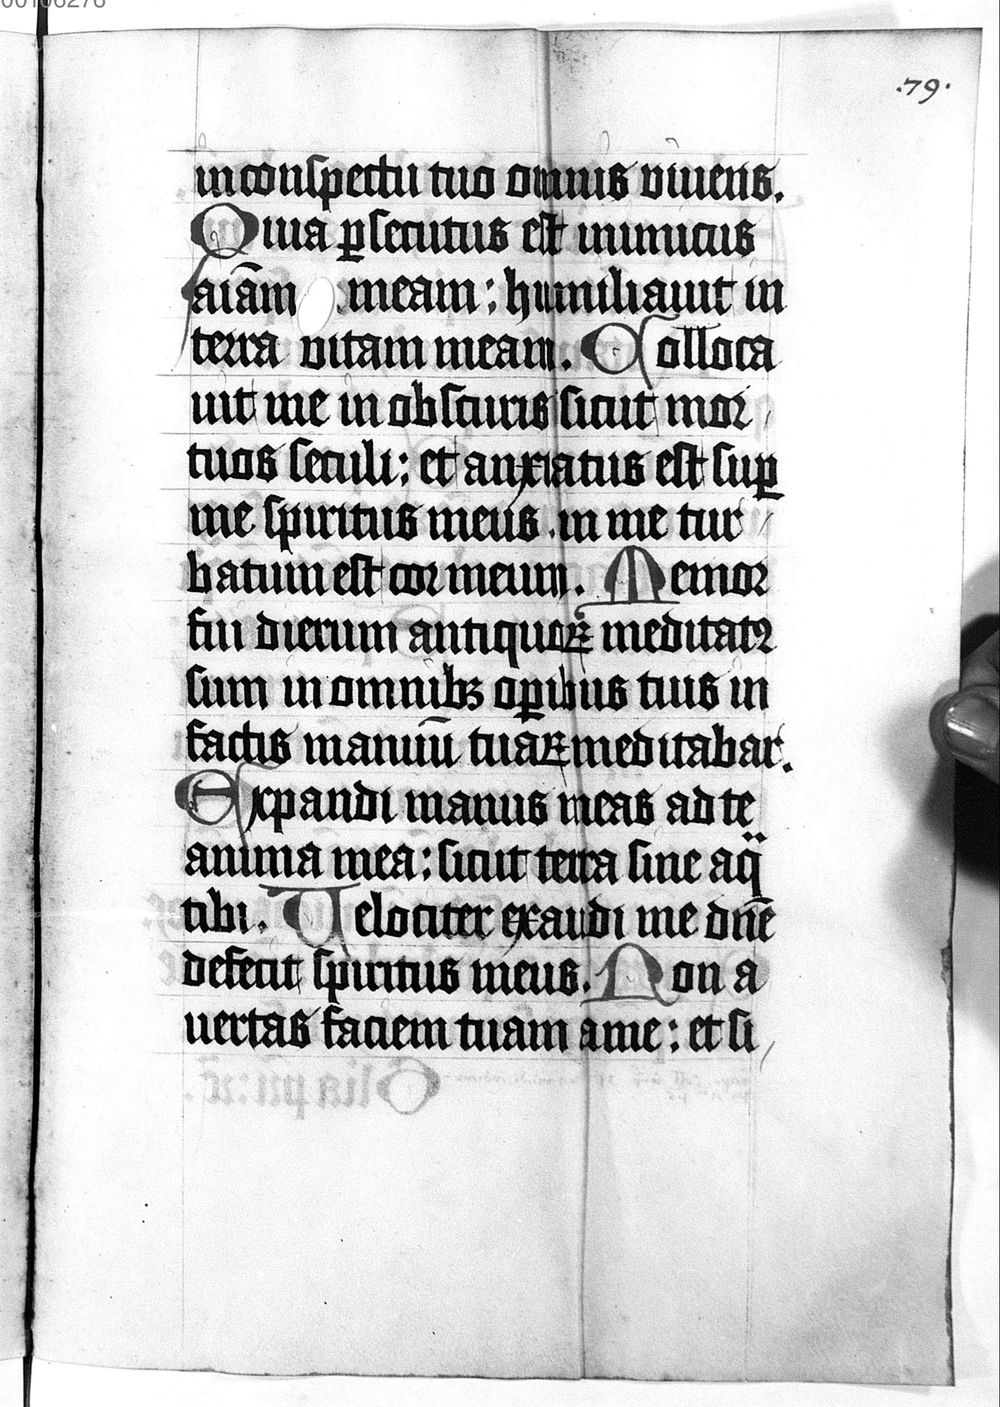 00106276
.79.
in conspectu tuo omnis viuens.
Quia ꝑsecutus est inimicus
aīam meam : humiliauit in
terra vitam meam. Colloca
uit me in obscuris sicut mor /
tuos seculi : et anxiatus est suꝑ
me spiritus meus .in me tur /
batum est cor meum. Memor
fui dierum antiquoꝝ meditatꝰ
sum in omnibꝫ oꝑibus tuis in
factis manuū tuaꝝ meditabar.
Expandi manus meas ad te
anima mea : sicut terra sine aq̈
tibi. Velociter exaudi me dn̄e
defecit spiritus meus. Non a
uertas faciem tuam a me : et si /